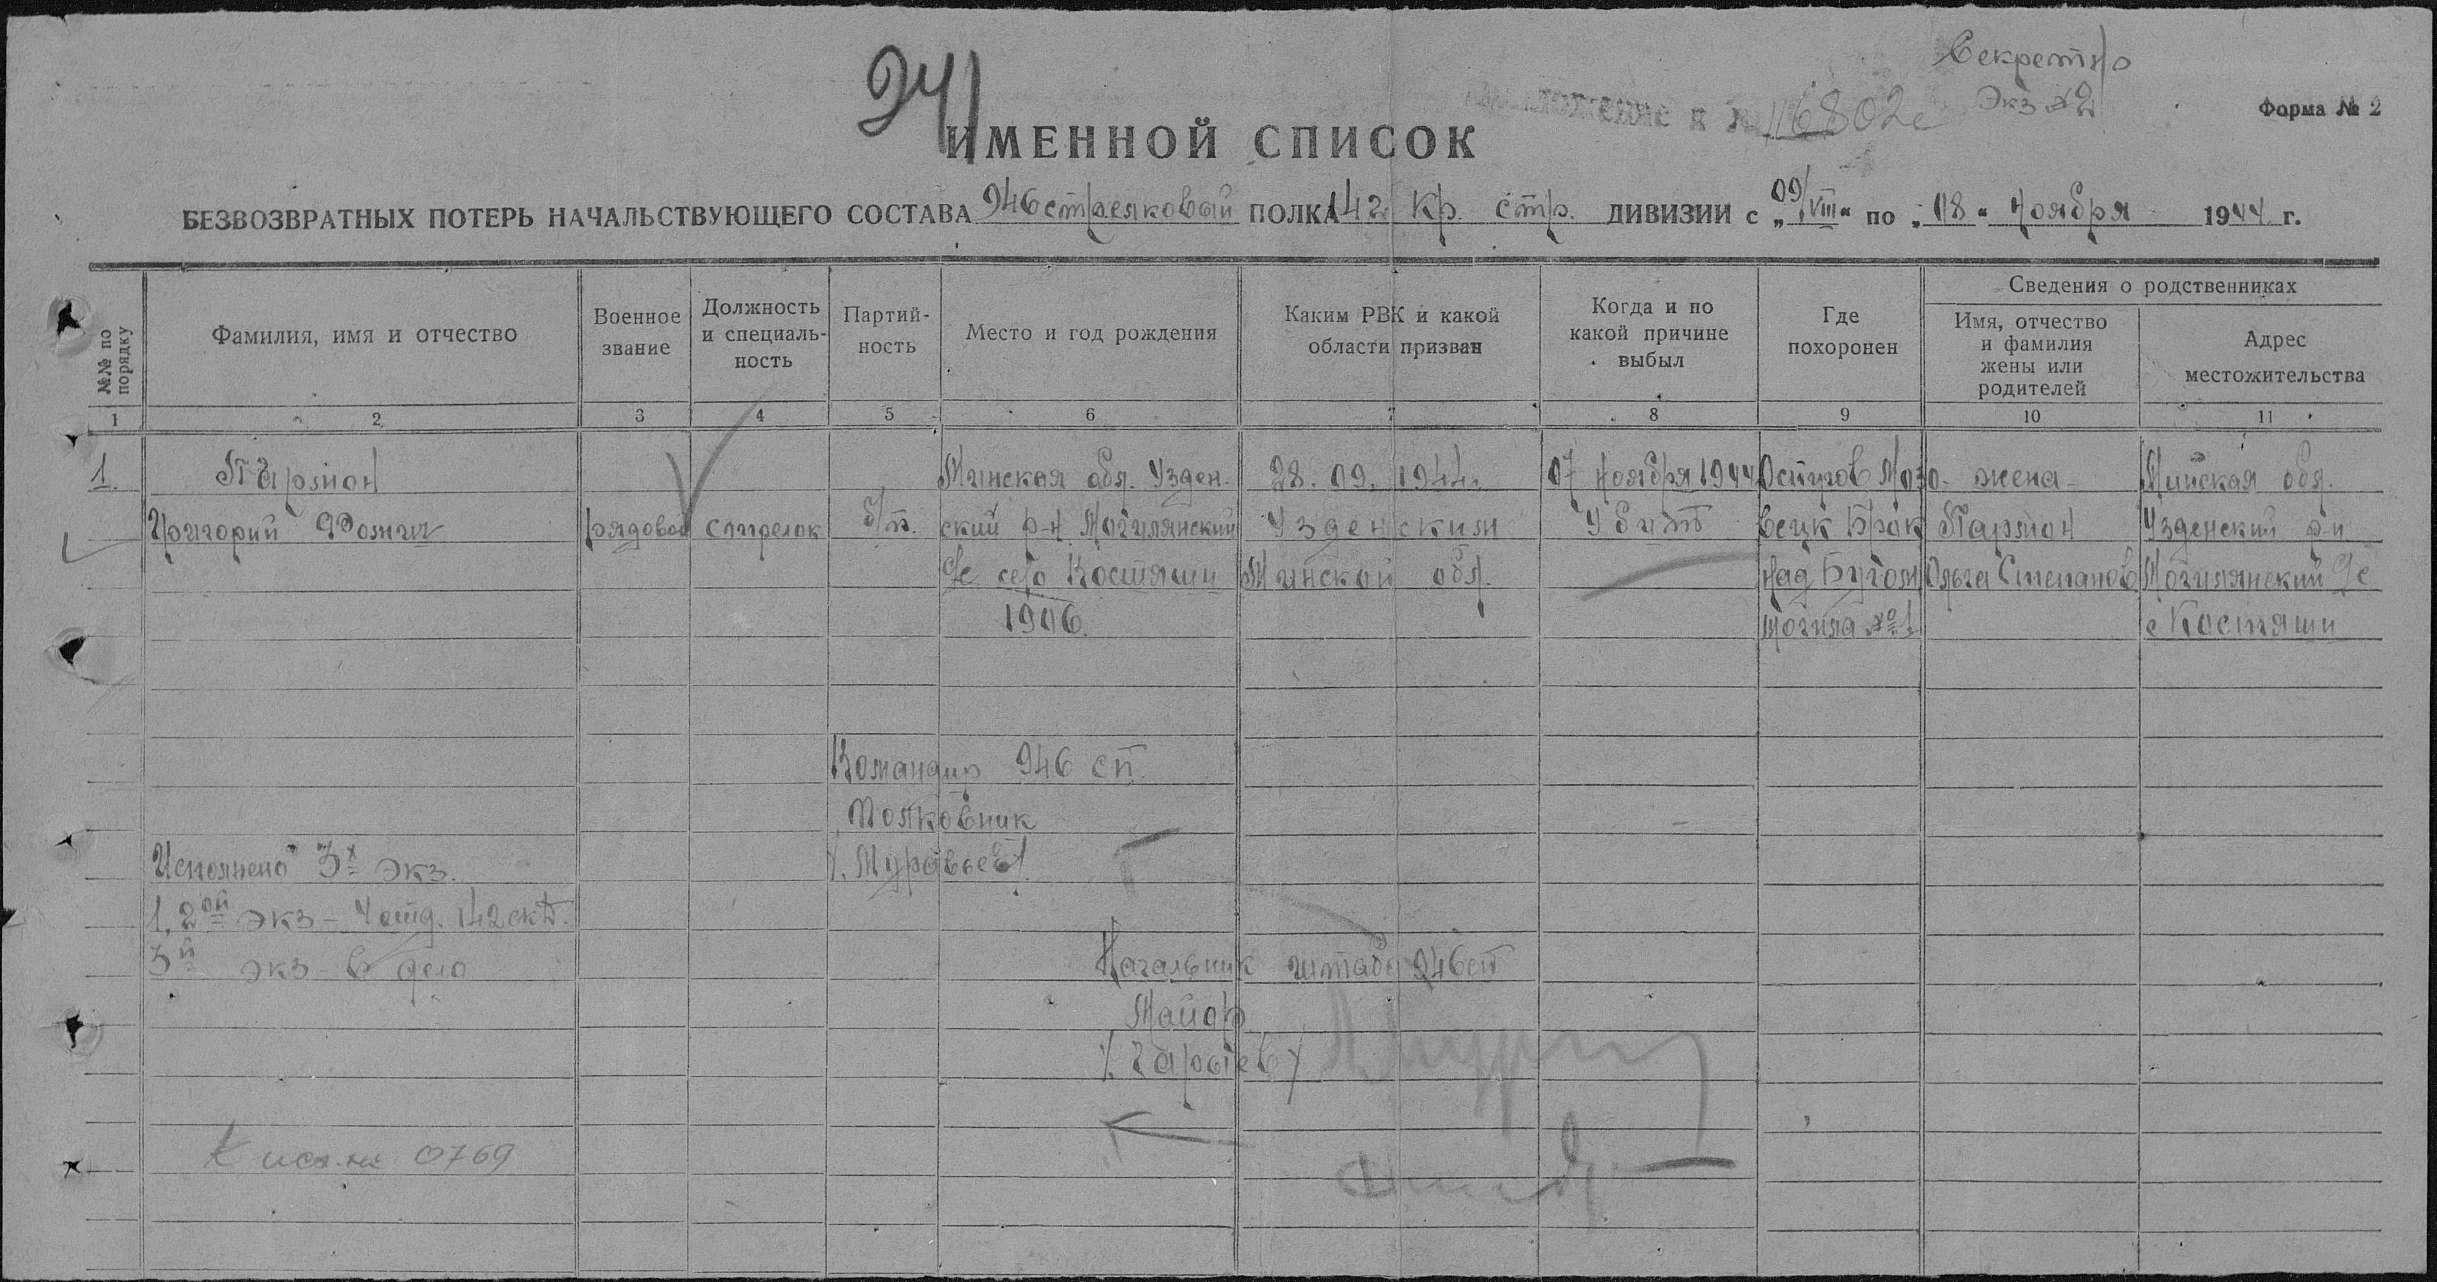 241
Секретно
Экз №2
116802с
Форма № 2
ИМЕННОЙ СПИСОК
БЕЗВОЗВРАТНЫХ ПОТЕРЬ НАЧАЛЬСТВУЮЩЕГО СОСТАВА 946 стрелковый ПОЛКА 142 Кр. стр. ДИВИЗИИ с „09/VIII“ по „18“ Ноября 1944 г.
№№ по порядку
Фамилия, имя и отчество
Военное звание
Должность и специаль-ность
Партий-ность
Место и год рождения
Каким РВК и какой области призван
Когда и по какой причине выбыл
Где похоронен
Сведения о родственниках
Имя, отчество и фамилия жены или родителей
Адрес местожительства
1 2 3 4 5 6 7 8 9 10 11
1. Пармон Минская обл. Узден- 28.09.1944г. 07 ноября 1944 Остров Мазо- жена- Минская обл.
Григорий Фомич рядовой стрелок б/п. ский р-н Могилянский Узденским Убит вецк Брок Пармон Узденский р-н
с/с село Костяши Минской обл. над Бугом Ольга Степанов Могилянский с/с
1906. могила №1 с Костяши
Командир 946 сп
Полковник
/. Муровьев/
Исполнено 3х экз.
1, 2ой экз – 4 отд. 142 скд.
3й экз – в дело
Начальник штаба 946сп
Майор
К исх. № 0769